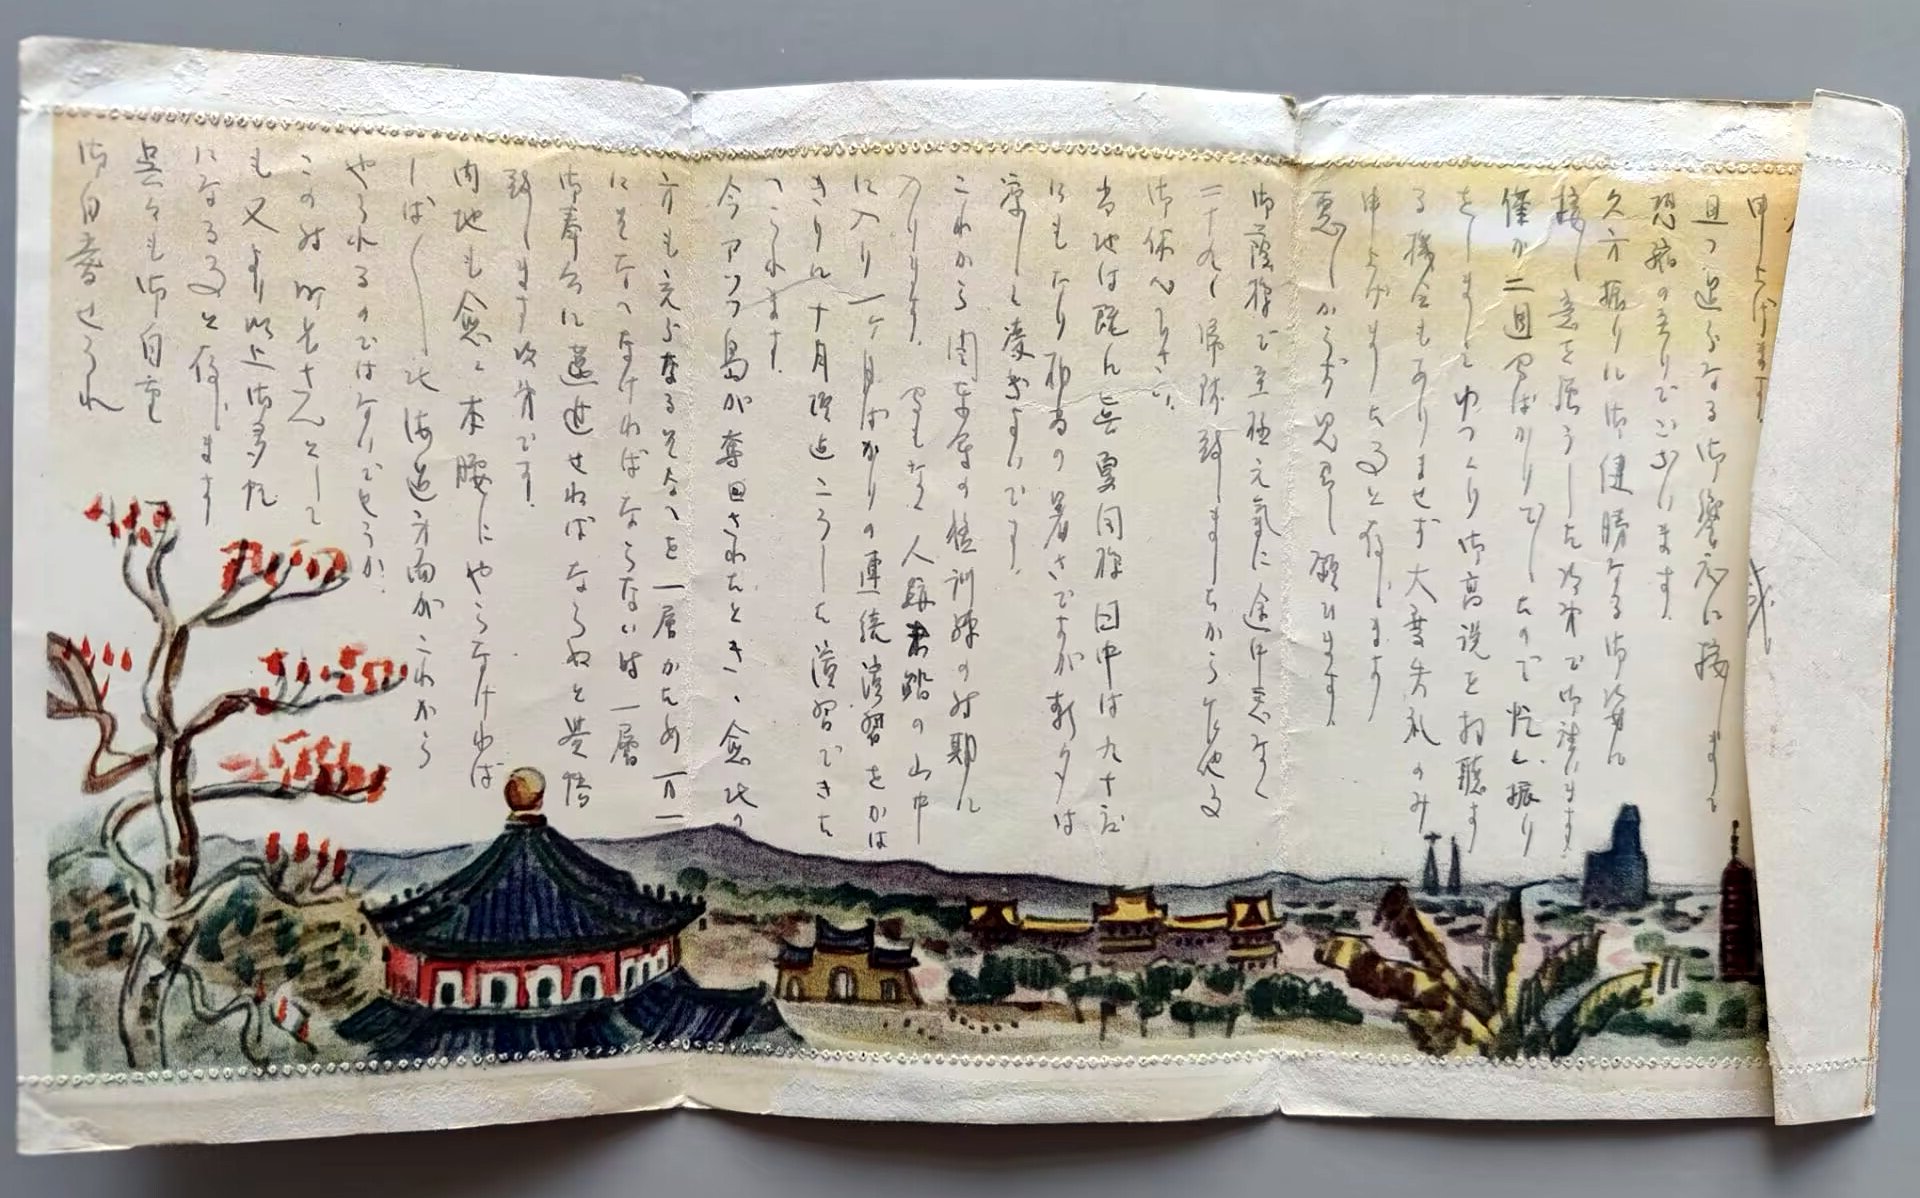 申し上げます
且つ過分なる御饗応に接しまして
恐縮の至りでございます
久方振りに御健勝なる御姿に
接し意を強うした次第で御座います
僅か二週間ばかりでしたので忙しい振り
をしましてゆつくり御高説を拝聴す
る機会もありませず大変失礼のみ
申上げました事と存じます
悪しからず思召し願ひます
御蔭様で至極元気に途中恙なく
二十九日帰隊致しましたから乍他事
御休心下さい
当地は既に真夏同様日中は九十度
にもなり相当の暑さですが朝夕は
涼しく凌ぎよいです
これから関東軍の猛訓練の時期に
入ります 間もなく人跡未踏の山中
に入り一ヶ月ばかりの連続演習をかは
きりに十月頃迄こうした演習できた
へられます
今アッツ島が奪回されたとき、愈北の
方も立派なるそなへを一層かため万一
にそなへなければならない時一層
御奉公に邁進せねばならぬと覚悟
致します次第です
内地も愈々本腰にやらなければ
しば〱北海道方面がこれから
やられるのではないでせうか
この時町長さんとして
も又より以上御多忙
になる事と存じます
呉々も御自重
御自愛せられ